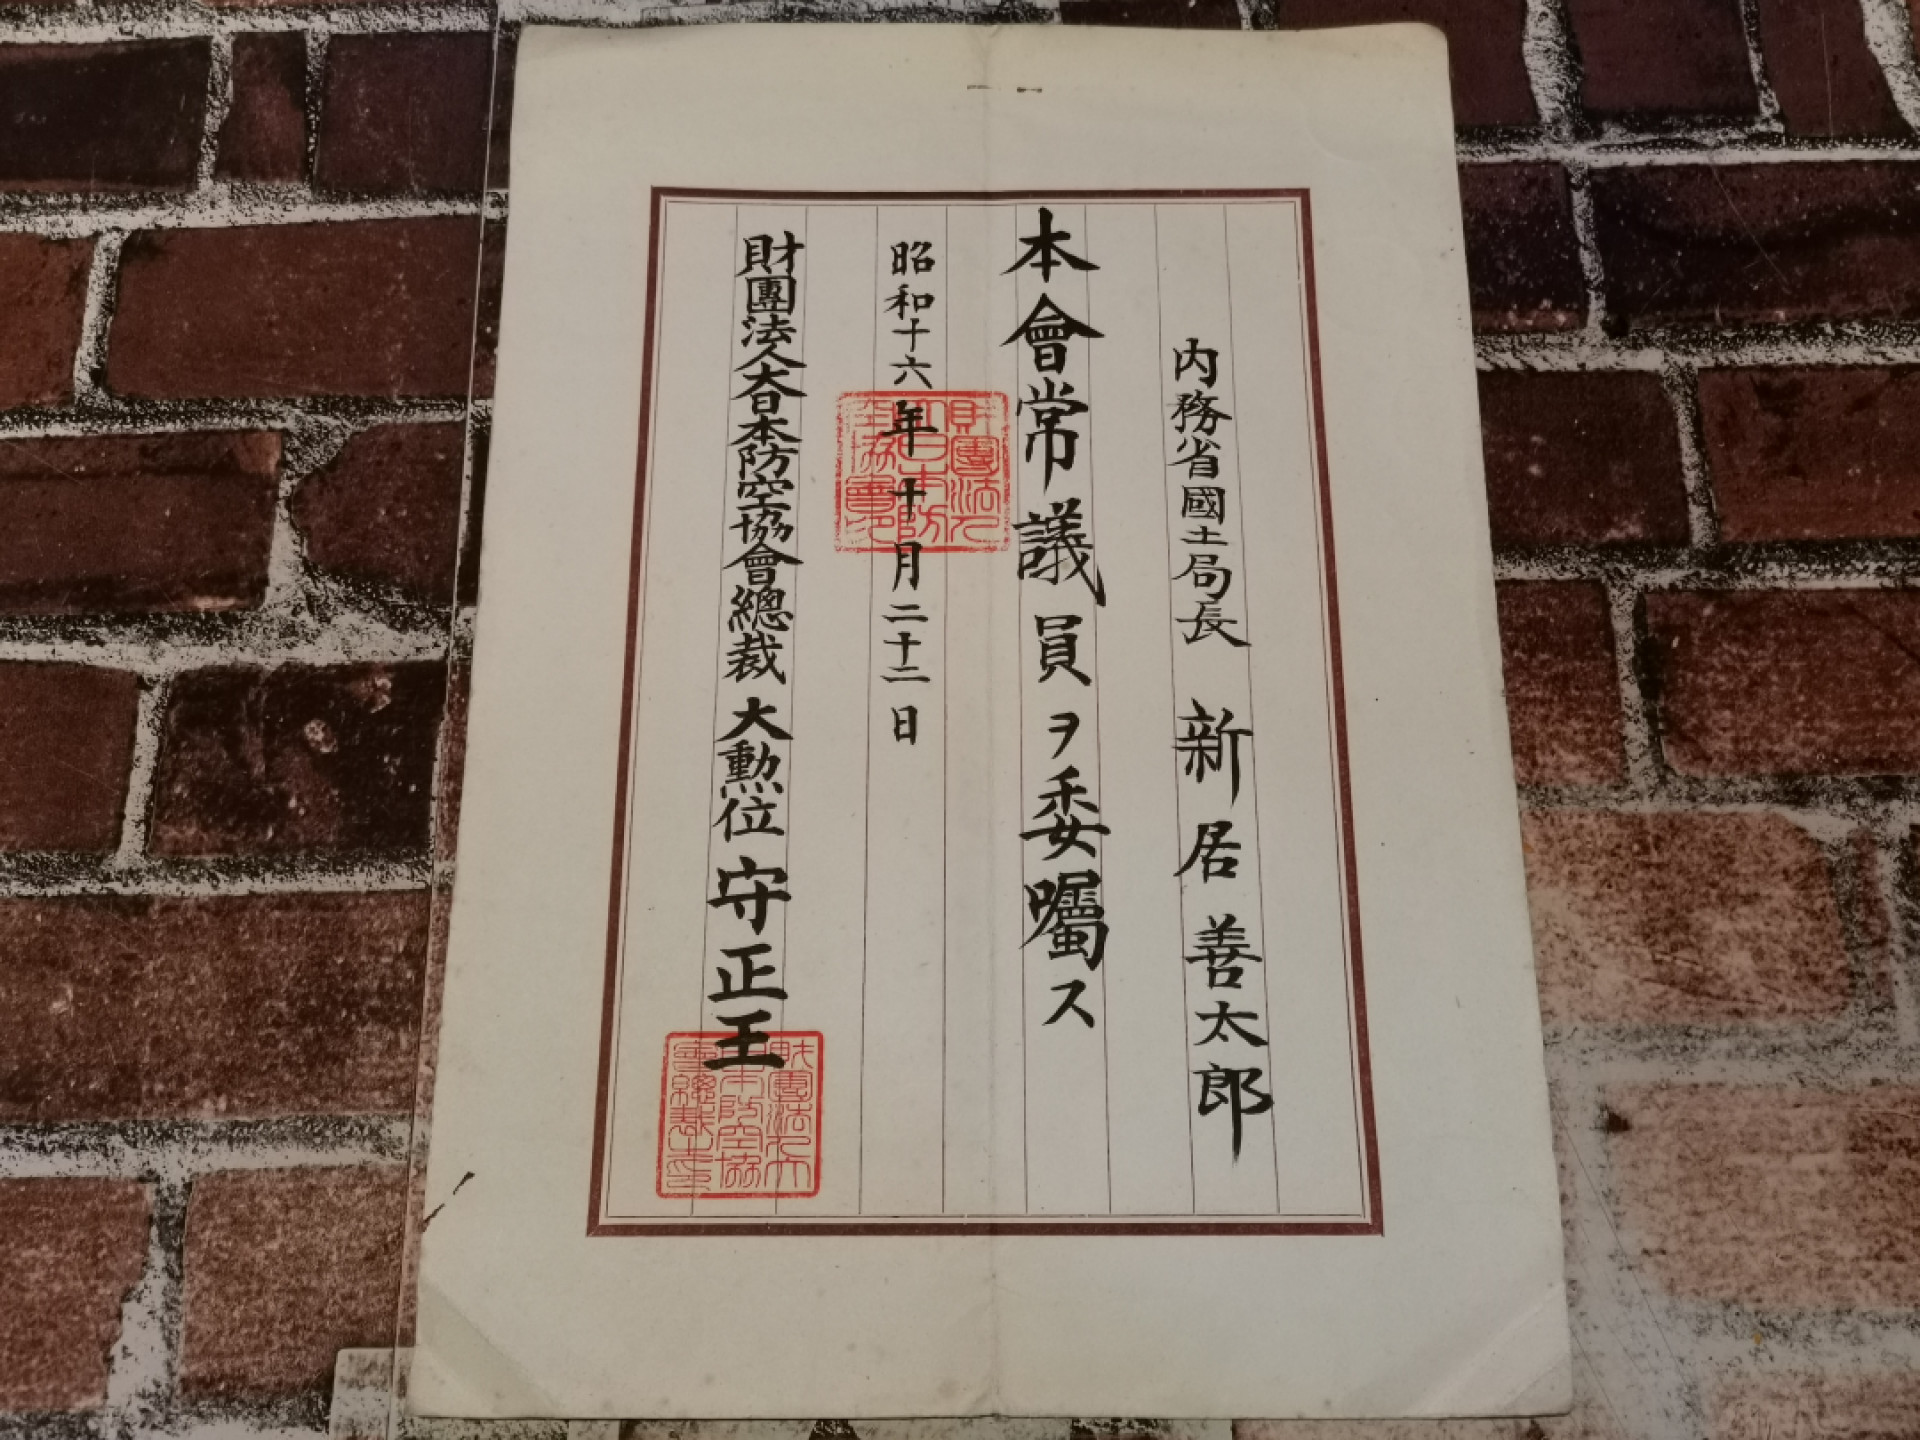 内務省國土局長 新居善太郎
本會常議員ヲ委囑ス
昭和十六年十月二十二日
財團法人大日本防空協會總裁 大勲位 守正王
財團法人大日本防空協會印
財團法人大日本防空協會總裁之印